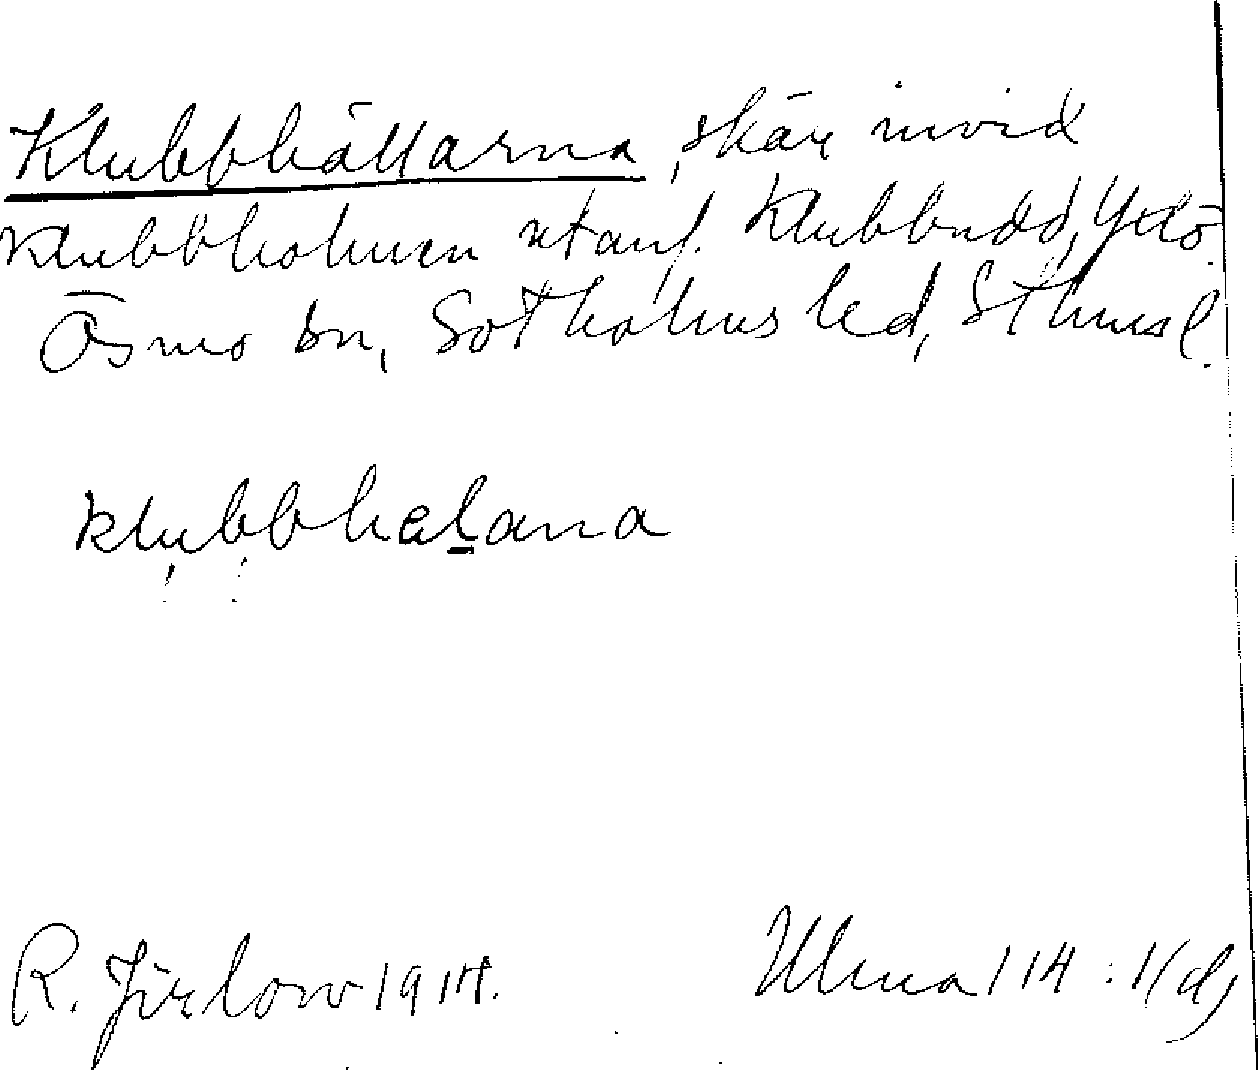 Klubbhällarna, skär invid
Klubbholmen utanf. Klubbudd, Yttö.
Ösmo sn, Sotholms hd, Sthmsl.
klubbhalana
R. Jirlow 1914.
Ulma 114:1(d)